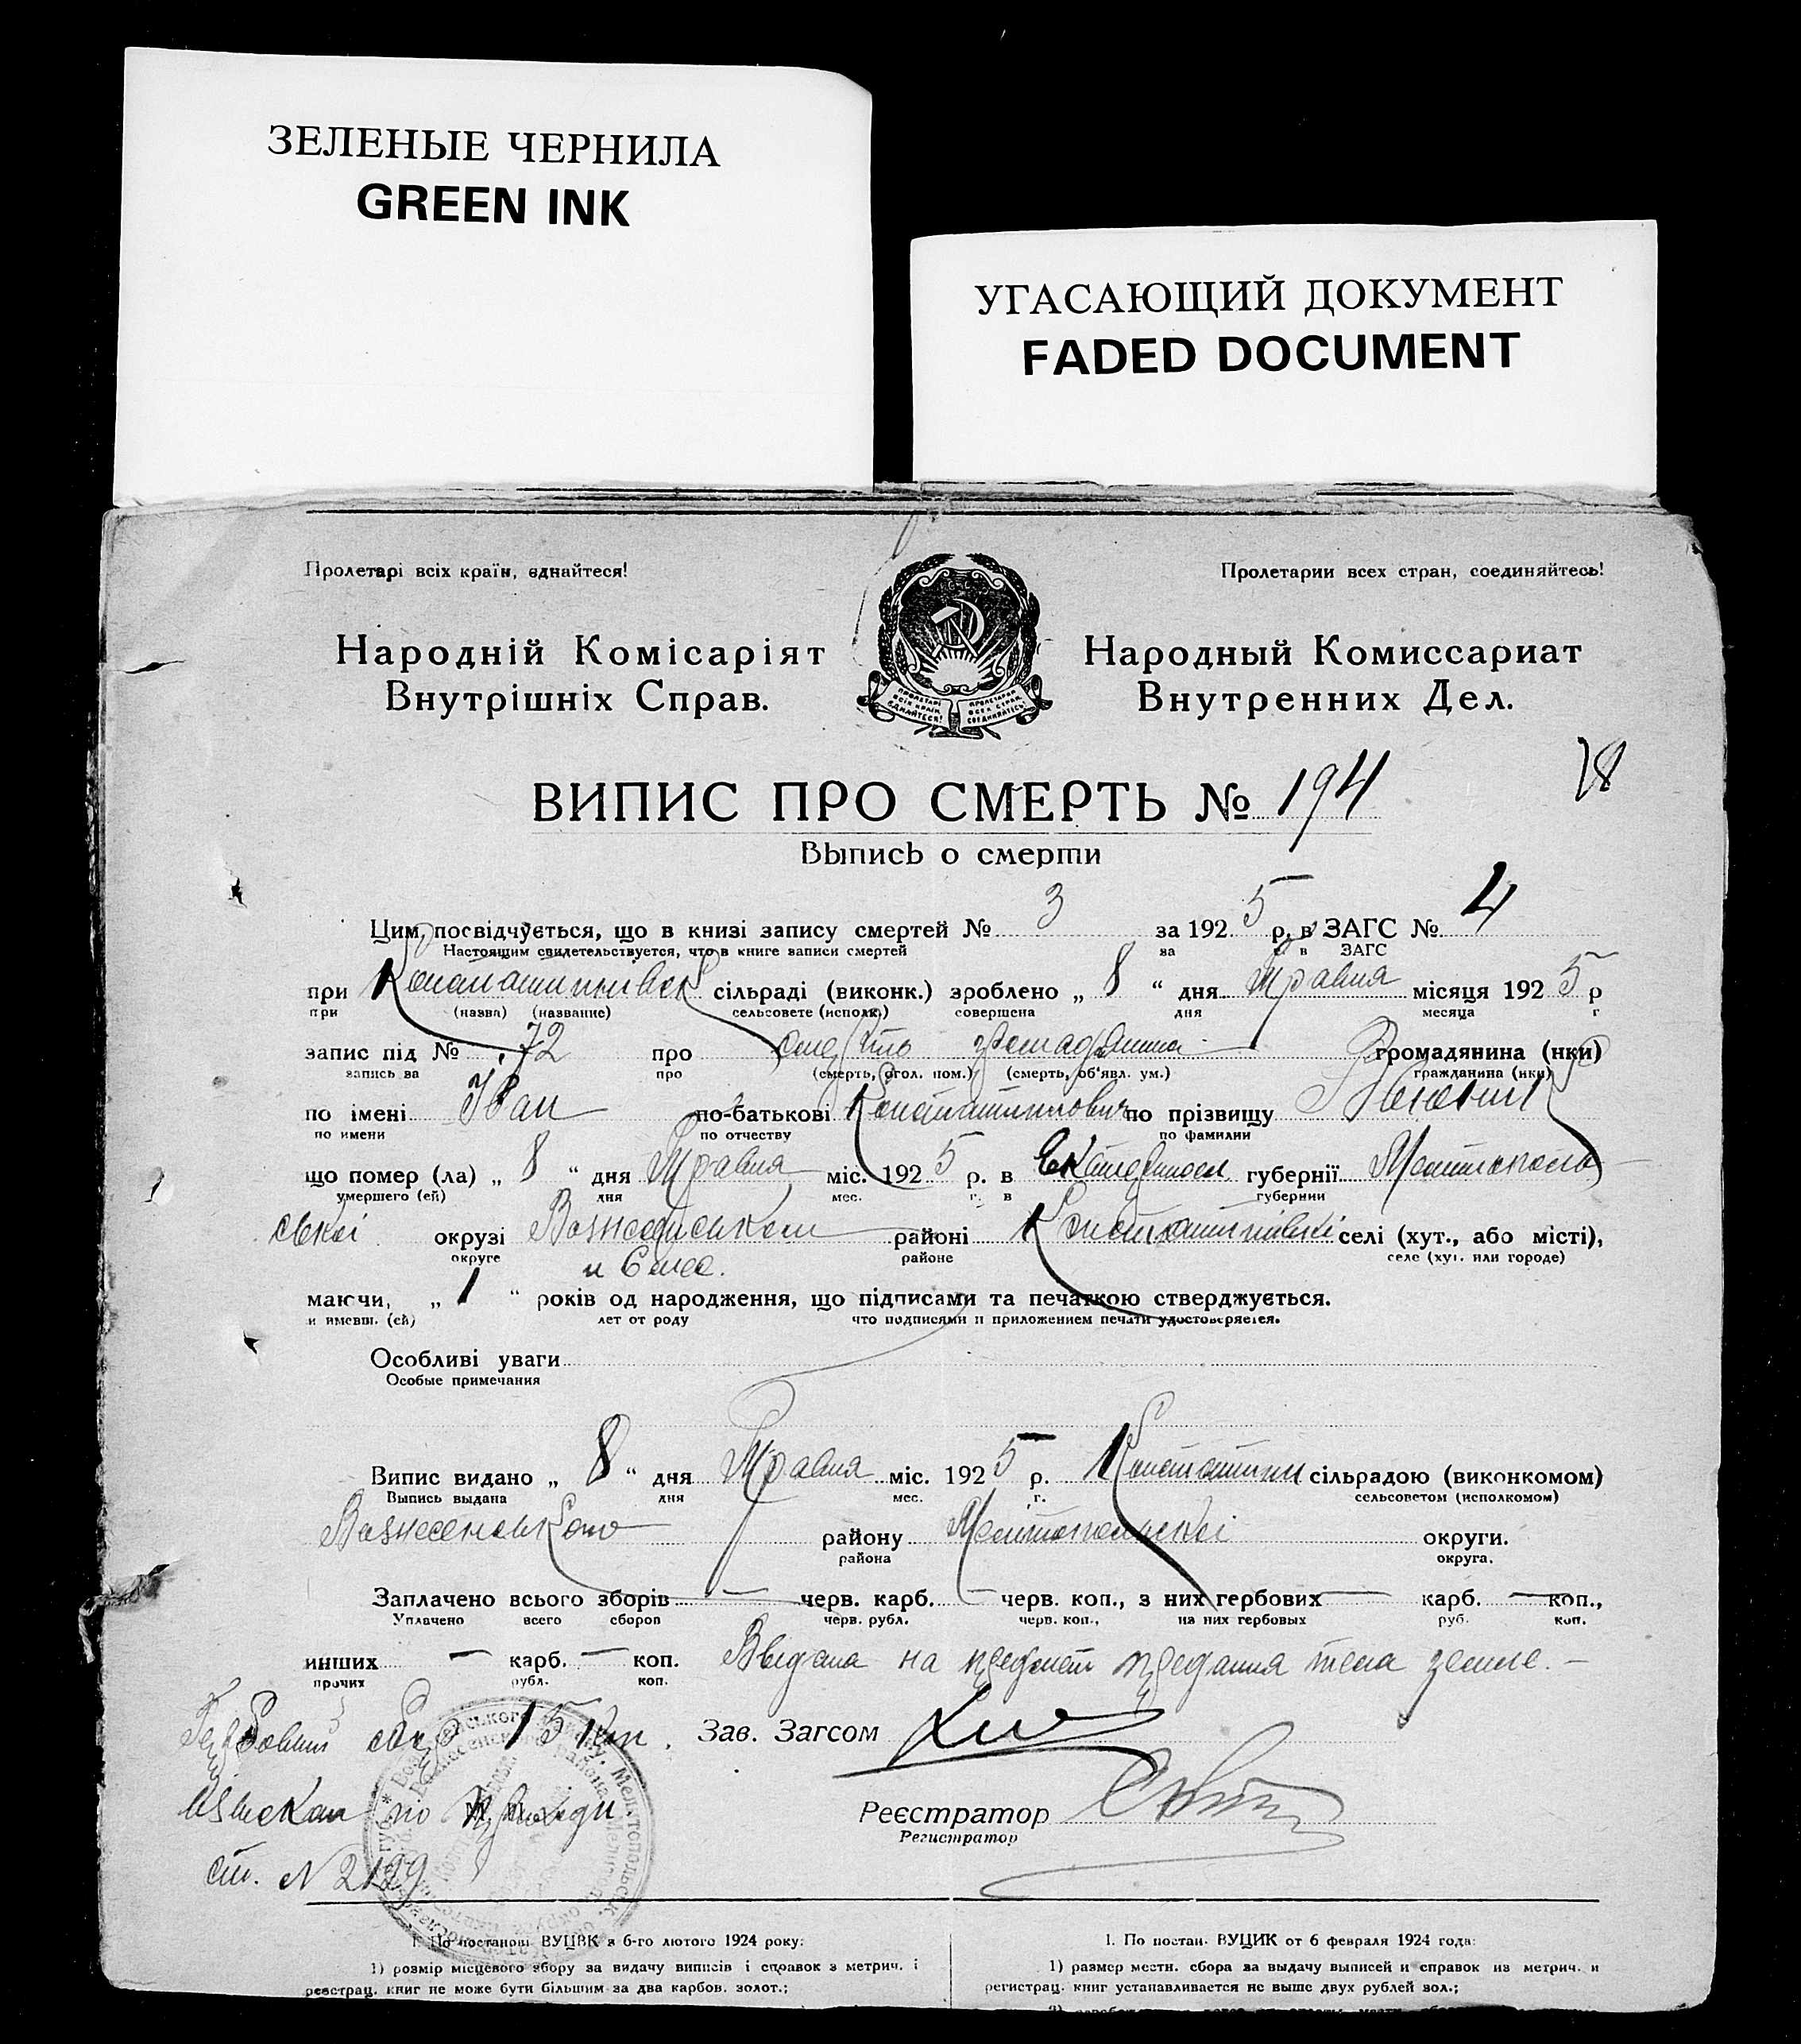 ЗЕЛЕНЫЕ ЧЕРНИЛА
GREEN INK
УГАСАЮЩИЙ ДОКУМЕНТ
FADED DOCUMENT
Пролетарі всіх країн, єднайтеся!
Пролетарии всех стран, соединяйтесь!
Народній Комісаріят
Внутрішніх Справ.
Народный Комиссариат
Внутренних Дел.
ПРОЛЕТАРІ ВСІХ КРАЇН ЄДНАЙТЕСЯ!
ПРОЛЕТАРИИ ВСЕХ СТРАН СОЕДИНЯЙТЕСЬ!
78
ВИПИС ПРО СМЕРТЬ № 194
Выпись о смерти
Цим посвідчується, що в книзі запису смертей № 3 за 1925 р. в ЗАГС № 4
Настоящим свидетельствуется, что в книге записи смертей за в ЗАГС
при Константинівск сільраді (виконк.) зроблено „ 8 “ дня Травня місяця 1925 р
при (назва) (название) сельсовете (исполк.) совершена дня месяца г
запис під № 72 про смерть громадянина громадянина (нки)
запись за про (смерть, огол. пом.) (смерть, об'явл. ум.) гражданина (нки)
по імені Іван по-батькові Константинович по прізвищу
по имени по отчеству по фамилии
що помер (ла) „ 8 “ дня Травня міс. 1925 р. в Екатериносл. губернії Мелитополь
умершего (ей) дня мес. г. в губернии
ській окрузі районі Константинівкі селі (хут., або місті),
округе районе селе (хут. или городе)
и 6 мес.
маючи, „ 1 “ років од народження, що підписами та печаткою стверджується.
и имевш. (ей) лет от роду что подписями и приложением печати удостоверяется.
Особливі уваги
Особые примечания
Випис видано „ 8 “ дня Травня міс. 1925 р. Константин сільрадою (виконкомом)
Выпись выдана дня мес. г. сельсоветом (исполкомом)
Вознесенського району Мелитопольскі округи.
района округа.
Заплачено всього зборів — черв. карб. — черв. коп., з них гербових — карб. — коп.,
Уплачено всего сборов черв. рубл. черв. коп., из них гербовых руб. коп.
инших — карб. — коп. Выдана на предмет предания тела земле. –
прочих рубл. коп.
Гербовий сбор 15 коп. Зав. Загсом
взыскан по
Реєстратор
Регистратор
ст. N 2129
1. По постанові ВУЦВК з 6-го лютого 1924 року:
1) розмір місцевого збору за видачу виписів і справок з метрич. і
реєстрац. книг не може бути більшим за два карбов. золот.;
1. По постан. ВУЦИК от 6 февраля 1924 года:
1) размер местн. сбора за выдачу выписей и справок из метрич. и
регистрац. книг устанавливается не выше двух рублей зол.;